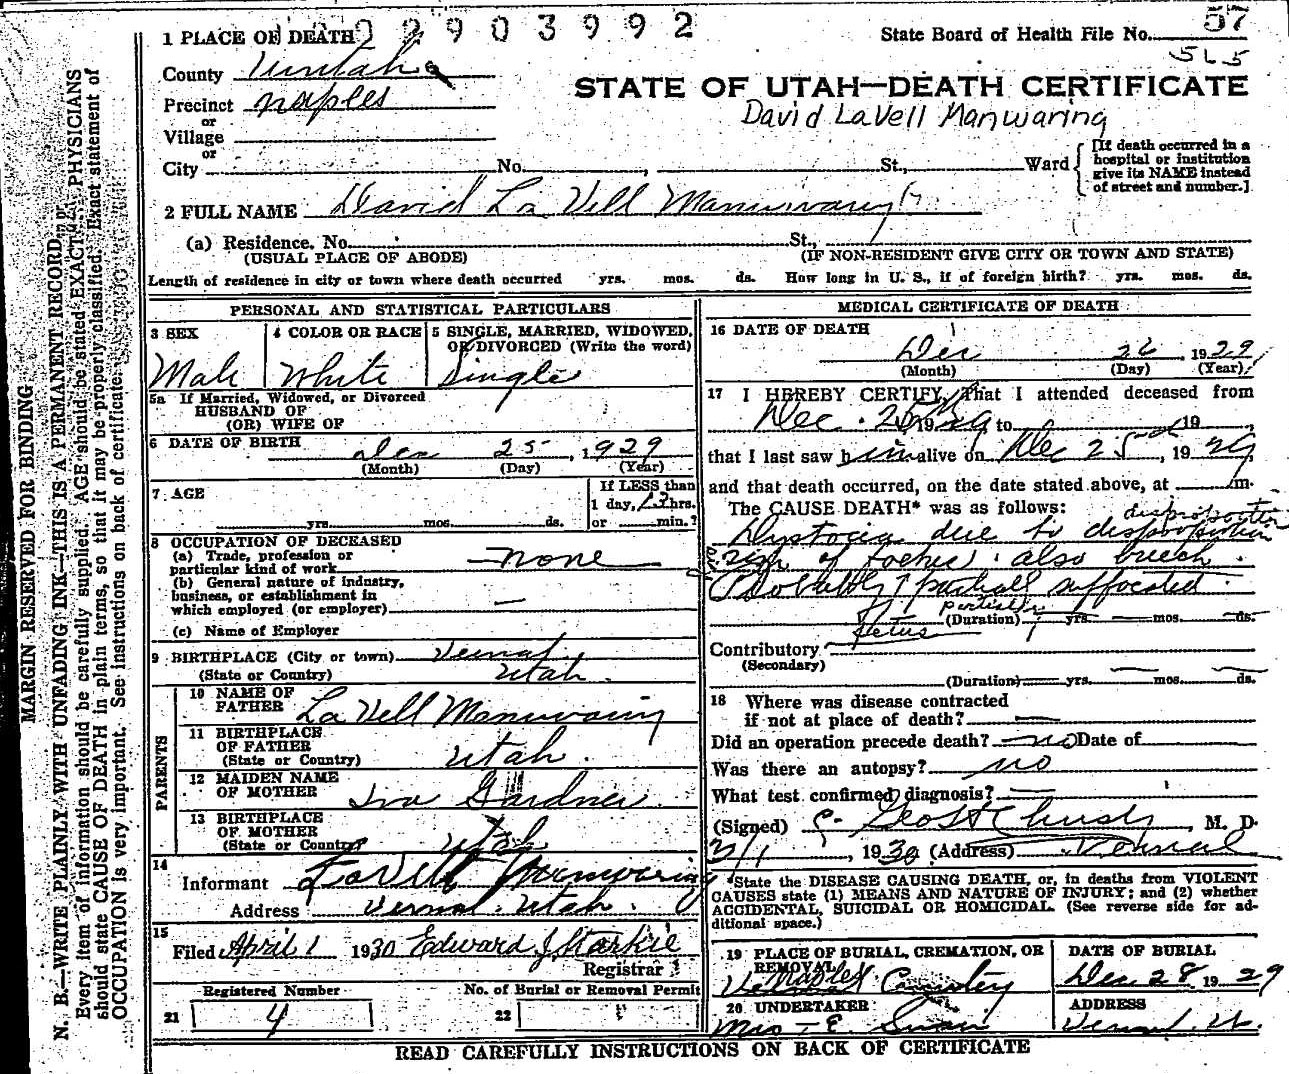 1 PLACE OF DEATH 02903992 State Board of Health File No. 57
5L5
County Uintah
STATE OF UTAH—DEATH CERTIFICATE
Precinct Naples
David LaVell Manwaring
or
Village
or
City No. , St., Ward
[If death occurred in a hospital or institution give its NAME instead of street and number.]
2 FULL NAME David La Vell Manwaring
(a) Residence. No. St.,
(USUAL PLACE OF ABODE) (IF NON-RESIDENT GIVE CITY OR TOWN AND STATE)
Length of residence in city or town where death occurred yrs. mos. ds. How long in U. S., if of foreign birth? yrs. mos. ds.
PERSONAL AND STATISTICAL PARTICULARS
3 SEX 4 COLOR OR RACE 5 SINGLE, MARRIED, WIDOWED,
OR DIVORCED (Write the word)
Male White Single
5a If Married, Widowed, or Divorced
HUSBAND OF
(OR) WIFE OF
6 DATE OF BIRTH Dec 25, 1929
(Month) (Day) (Year)
7 AGE
If LESS than
1 day, 13 hrs.
yrs. mos. ds. or min.?
8 OCCUPATION OF DECEASED
(a) Trade, profession or
particular kind of work none
(b) General nature of industry,
business, or establishment in
which employed (or employer)
(c) Name of Employer
9 BIRTHPLACE (City or town) Vernal
(State or Country) Utah.
PARENTS
10 NAME OF
FATHER LaVell Manwaring
11 BIRTHPLACE
OF FATHER
(State or Country) Utah.
12 MAIDEN NAME
OF MOTHER Iva Gardner
13 BIRTHPLACE
OF MOTHER
(State or Country) Utah
14
Informant LaVell Manwaring
Address Vernal, Utah.
15
Filed April 1 1930 Edward J Starkie
Registrar
Registered Number No. of Burial or Removal Permit
21 4 22
MEDICAL CERTIFICATE OF DEATH
16 DATE OF DEATH
Dec 26, 1929
(Month) (Day) (Year)
17 I HEREBY CERTIFY, That I attended deceased from
Dec. 25, 1929 to 19
that I last saw him alive on Dec 25, 1929,
and that death occurred, on the date stated above, at m.
The CAUSE DEATH* was as follows:
disproportion
Dystocia due to disproportion
size of foetus. also breech.
Probably partial suffocated
partially
(Duration) yrs. mos. ds.
fetus
Contributory
(Secondary)
(Duration) yrs. mos. ds.
18 Where was disease contracted
if not at place of death?
Did an operation precede death? no Date of
Was there an autopsy? no
What test confirmed diagnosis?
(Signed) , M. D.
3/1, 1930 (Address) Vernal
*State the DISEASE CAUSING DEATH, or, in deaths from VIOLENT
CAUSES state (1) MEANS AND NATURE OF INJURY; and (2) whether
ACCIDENTAL, SUICIDAL OR HOMICIDAL. (See reverse side for ad-
ditional space.)
19 PLACE OF BURIAL, CREMATION, OR
REMOVAL
Naples Cemetery
DATE OF BURIAL
Dec 28 1929
20 UNDERTAKER
Mrs E. Swain
ADDRESS
Vernal, Ut.
READ CAREFULLY INSTRUCTIONS ON BACK OF CERTIFICATE
MARGIN RESERVED FOR BINDING
N. B.—WRITE PLAINLY, WITH UNFADING INK—THIS IS A PERMANENT RECORD
Every item of information should be carefully supplied. AGE should be stated EXACTLY. PHYSICIANS
should state CAUSE OF DEATH in plain terms, so that it may be properly classified. Exact statement of
OCCUPATION is very important. See instructions on back of certificate.